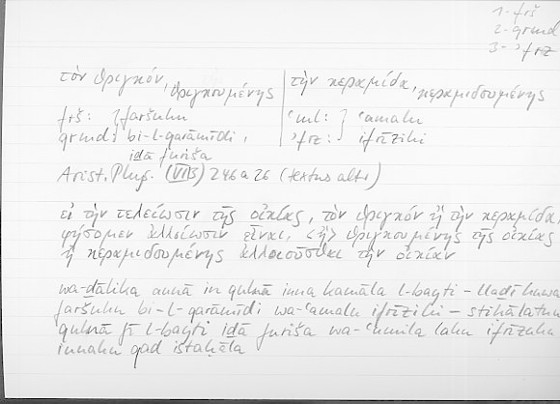 1- frš
2- grmd
3- ʾfrz
τὸν θριγκόν, θριγκουμένης | τὴν κεραμίδα, κεραμιδουμένης
frš: } faršuhu ʿml: } ʿamalu
grmd: bi-l-qarāmīdi, ʾfrz: ifrīzihi
iḏā furiša
Arist. Phys. (VII 3) 246 a 26 (textus alter)
εἰ τὴν τελείωσιν τῆς οἰκίας, τὸν θριγκόν ἢ τὴν κεραμίδα,
φήσομεν ἀλλοίωσιν εἶναι, <ἢ> θριγκουμένης τῆς οἰκίας
ἢ κεραμιδουμένης ἀλλοιοῦσθαι τὴν οἰκίαν
wa-ḏālika annā in qulnā inna kamāla l-bayti – llaḏī huwa
faršuhu bi-l-qarāmīdi wa-ʿamalu ifrīzihi – stiḥālatun
qulnā fī l-bayti iḏā furiša wa-ʿumila lahu ifrīzuhu
innahu qad istaḥāla